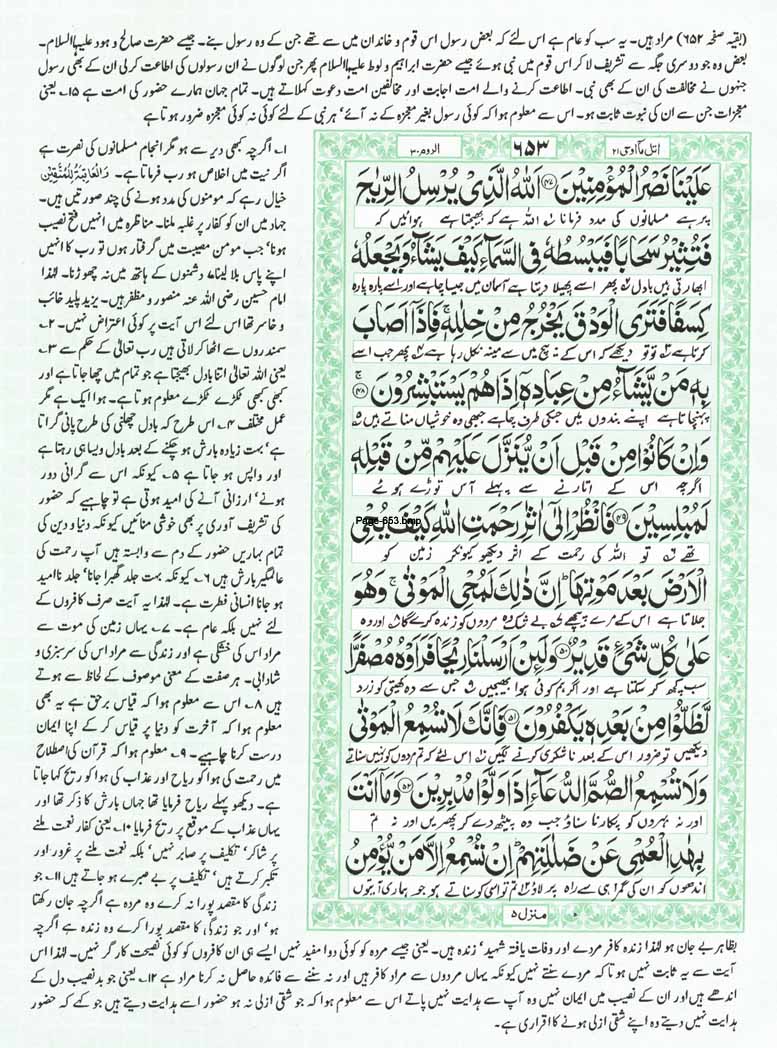 (بقیہ صفحہ ۶۵۲) مراد ہیں۔ یہ سب کو عام ہے اس لئے کہ بعض رسول اس قوم و خاندان میں سے تھے جن کے وہ رسول بنے۔ جیسے حضرت صالح و ہود علیہما السلام۔
بعض وہ جو دوسری جگہ سے تشریف لا کر اس قوم میں نبی ہوئے جیسے حضرت ابراہیم و لوط علیہما السلام پھر جن لوگوں نے ان رسولوں کی اطاعت کرلی ان کے بھی رسول
جنہوں نے مخالفت کی ان کے بھی نبی۔ اطاعت کرنے والے امت اجابت اور مخالفین امت دعوت کہلاتے ہیں۔ تمام جہان ہمارے حضور کی امت ہے ۱۵۔ یعنی
معجزات جن سے ان کی نبوت ثابت ہو۔ اس سے معلوم ہوا کہ کوئی رسول بغیر معجزہ کے نہ آئے‘ ہر نبی کے لئے کوئی نہ کوئی معجزہ ضرور ہوتا ہے
اتل مااوحی ۲۱
۶۵۳
الروم ۳۰
عَلَيْنَا نَصْرُ الْمُؤْمِنِيْنَ ۴۷ اَللّٰهُ الَّذِيْ يُرْسِلُ الرِّيٰحَ
پر ہے مسلمانوں کی مدد فرمانا اللہ ہے کہ بھیجتا ہے ہوائیں کہ
فَتُثِيْرُ سَحَابًا فَيَبْسُطُهٗ فِي السَّمَآءِ كَيْفَ يَشَآءُ وَيَجْعَلُهٗ
ابھارتی ہیں بادل پھر اسے پھیلا دیتا ہے آسمان میں جیسا چاہے اور اسے پارہ پارہ
كِسَفًا فَتَرَى الْوَدْقَ يَخْرُجُ مِنْ خِلٰلِهٖ ۚ فَاِذَآ اَصَابَ
کرتا ہے تو تو دیکھے کہ اس کے بیچ میں سے مینہ نکل رہا ہے پھر جب اسے
بِهٖ مَنْ يَّشَآءُ مِنْ عِبَادِهٖۤ اِذَا هُمْ يَسْتَبْشِرُوْنَ ۴۸
پہنچاتا ہے اپنے بندوں میں جسکی طرف چاہے جبھی وہ خوشیاں مناتے ہیں
وَاِنْ كَانُوْا مِنْ قَبْلِ اَنْ يُّنَزَّلَ عَلَيْهِمْ مِّنْ قَبْلِهٖ
اگرچہ اس کے اتارنے سے پہلے آس توڑے ہوئے
لَمُبْلِسِيْنَ ۴۹ فَانْظُرْ اِلٰٓى اٰثٰرِ رَحْمَتِ اللّٰهِ كَيْفَ يُحْيِ
Page-653.bmp
تھے تو اللہ کی رحمت کے اثر دیکھو کیونکر زمین کو
الْاَرْضَ بَعْدَ مَوْتِهَا ۭ اِنَّ ذٰلِكَ لَمُحْيِ الْمَوْتٰى ۚ وَهُوَ
جلاتا ہے اس کے مرے پیچھے بے شک وہ مردوں کو زندہ کرے گا اور وہ
عَلٰى كُلِّ شَيْءٍ قَدِيْرٌ ۵۰ وَلَئِنْ اَرْسَلْنَا رِيْحًا فَرَاَوْهُ مُصْفَرًّا
سب کچھ کر سکتا ہے اور اگر ہم کوئی ہوا بھیجیں جس سے وہ کھیتی کو زرد
لَّظَلُّوْا مِنْ بَعْدِهٖ يَكْفُرُوْنَ ۵۱ فَاِنَّكَ لَا تُسْمِعُ الْمَوْتٰى
دیکھیں تو ضرور اس کے بعد ناشکری کرنے لگیں اس لئے کہ تم مردوں کو نہیں سناتے
وَلَا تُسْمِعُ الصُّمَّ الدُّعَآءَ اِذَا وَلَّوْا مُدْبِرِيْنَ ۵۲ وَمَآ اَنْتَ
اور نہ بہروں کو پکارنا سناؤ جب وہ پیٹھ دے کر پھریں اور نہ تم
بِهٰدِ الْعُمْيِ عَنْ ضَلٰلَتِهِمْ ۭ اِنْ تُسْمِعُ اِلَّا مَنْ يُّؤْمِنُ
اندھوں کو ان کی گمراہی سے راہ پر لاؤ تم تو اسی کو سناتے ہو جو ہماری آیتوں
منزل ۵
۱۔ اگرچہ کبھی دیر سے ہو مگر انجام مسلمانوں کی نصرت ہے
اگر نیت میں اخلاص ہو رب فرماتا ہے۔ وَالْعَاقِبَةُ لِلْمُتَّقِيْنَ
خیال رہے کہ مومنوں کی مدد ہونے کی چند صورتیں ہیں۔
جہاد میں ان کو کفار پر غلبہ ملنا۔ مناظرہ میں انہیں فتح نصیب
ہونا‘ جب مومن مصیبت میں گرفتار ہوں تو رب کا انہیں
اپنے پاس بلا لینا‘ دشمنوں کے ہاتھ میں نہ چھوڑنا۔ لہٰذا
امام حسین رضی اللہ عنہ منصور و مظفر ہیں۔ یزید پلید خائب
و خاسر تھا اس لئے اس آیت پر کوئی اعتراض نہیں۔ ۲۔
سمندروں سے اٹھا کر لاتی ہیں رب تعالیٰ کے حکم سے ۳۔
یعنی اللہ تعالیٰ اتنا بادل بھیجتا ہے جو تمام میں چھا جاتا ہے اور
کبھی کبھی ٹکڑے ٹکڑے معلوم ہوتا ہے۔ ہوا ایک ہے مگر
عمل مختلف ۴۔ اس طرح کہ بادل چھلنی کی طرح پانی گراتا
ہے‘ بہت زیادہ بارش ہو چکنے کے بعد بادل ویسا ہی رہتا ہے
اور واپس ہو جاتا ہے ۵۔ کیونکہ اس سے گرانی دور
ہونے‘ ارزانی آنے کی امید ہوتی ہے تو چاہیے کہ حضور
کی تشریف آوری پر بھی خوشی منائیں کیونکہ دنیا و دین کی
تمام بہاریں حضور کے دم سے وابستہ ہیں آپ رحمت کی
عالمگیر بارش ہیں ۶۔ کیونکہ بہت جلد گھبرا جانا‘ جلد ناامید
ہو جانا انسانی فطرت ہے۔ لہٰذا یہ آیت صرف کافروں کے
لئے نہیں بلکہ عام ہے۔ ۷۔ یہاں زمین کی موت سے
مراد اس کی خشکی ہے اور زندگی سے مراد اس کی سرسبزی و
شادابی۔ ہر صفت کے معنی موصوف کے لحاظ سے ہوتے
ہیں ۸۔ اس سے معلوم ہوا کہ قیاس برحق ہے یہ بھی
معلوم ہوا کہ آخرت کو دنیا پر قیاس کر کے اپنا ایمان
درست کرنا چاہیے۔ ۹۔ معلوم ہوا کہ قرآن کی اصطلاح
میں رحمت کی ہوا کو ریاح اور عذاب کی ہوا کو ریح کہا جاتا
ہے۔ دیکھو پہلے ریاح فرمایا تھا جہاں بارش کا ذکر تھا اور
یہاں عذاب کے موقع پر ریح فرمایا ۱۰۔ یعنی کفار نعمت ملنے
پر شاکر‘ تکلیف پر صابر نہیں‘ بلکہ نعمت ملنے پر غرور اور
تکبر کرتے ہیں‘ تکلیف پر بے صبرے ہو جاتے ہیں ۱۱۔ جو
زندگی کا مقصد پورا نہ کرے وہ مردہ ہے اگرچہ جان رکھتا
ہو‘ اور جو زندگی کا مقصد پورا کرے وہ زندہ ہے اگرچہ
بظاہر بے جان ہو لہٰذا زندہ کافر مردے اور وفات یافتہ شہید‘ زندہ ہیں۔ یعنی جیسے مردہ کو کوئی دوا مفید نہیں ایسے ہی ان کافروں کو کوئی نصیحت کارگر نہیں۔ لہٰذا اس
آیت سے یہ ثابت نہیں ہوتا کہ مردے سنتے نہیں کیونکہ یہاں مردوں سے مراد کافر ہیں اور نہ سننے سے فائدہ حاصل نہ کرنا مراد ہے ۱۲۔ یعنی جو بدنصیب دل کے
اندھے ہیں اور ان کے نصیب میں ایمان نہیں وہ آپ سے ہدایت نہیں پاتے اس سے معلوم ہوا کہ جو شقی ازلی نہ ہو حضور اسے ہدایت دیتے ہیں جو کہے کہ حضور
ہدایت نہیں دیتے وہ اپنے شقی ازلی ہونے کا اقراری ہے۔